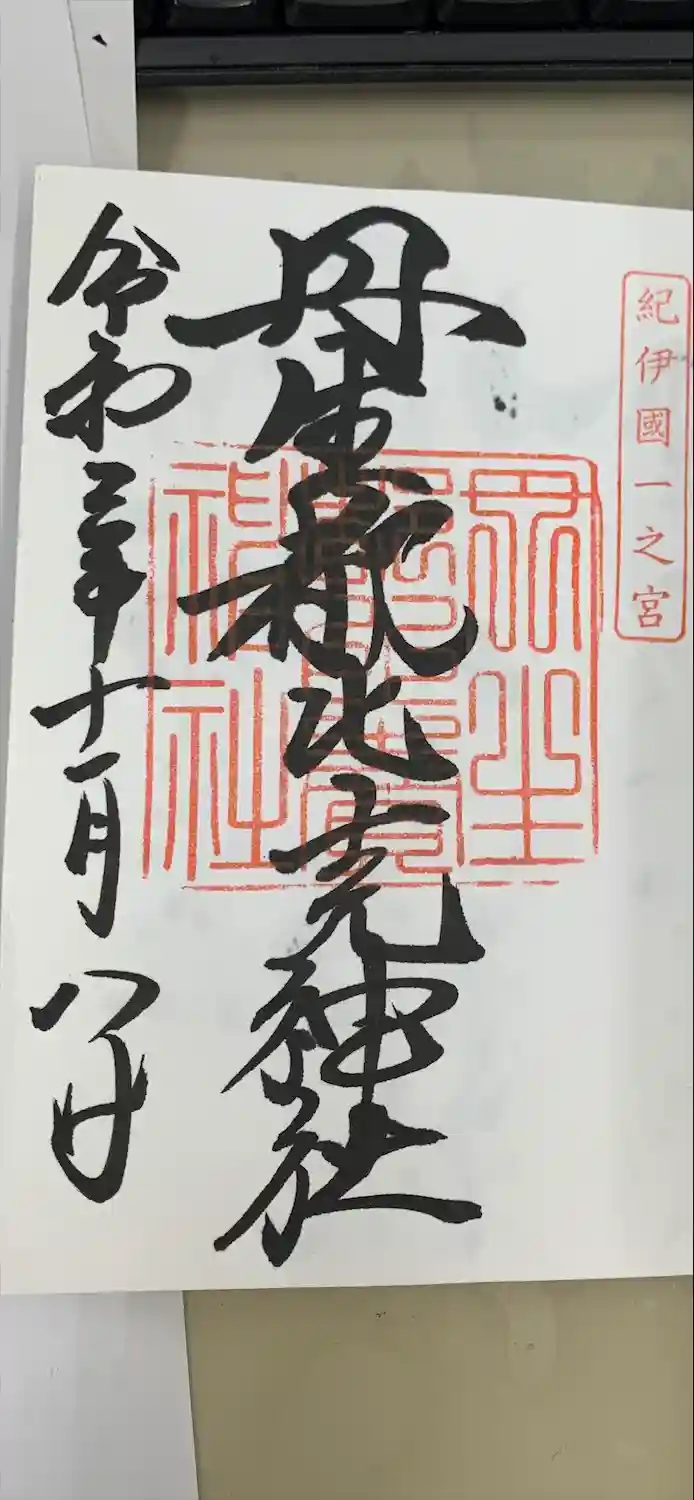 紀伊國一之宮
丹生都比売神社
丹生
都比賣
神社
令和二年十一月八日